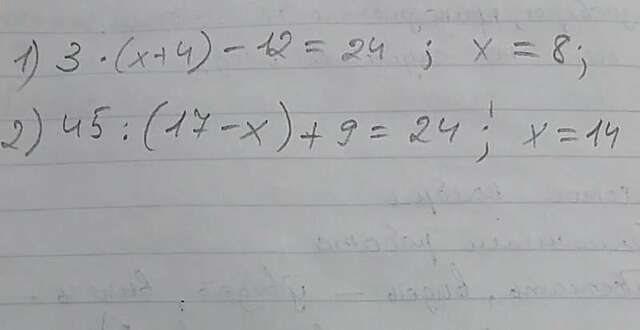 1) 3 · (x+4) - 12 = 24 ; x = 8;
2) 45 : (17 - x) + 9 = 24 ; x = 14